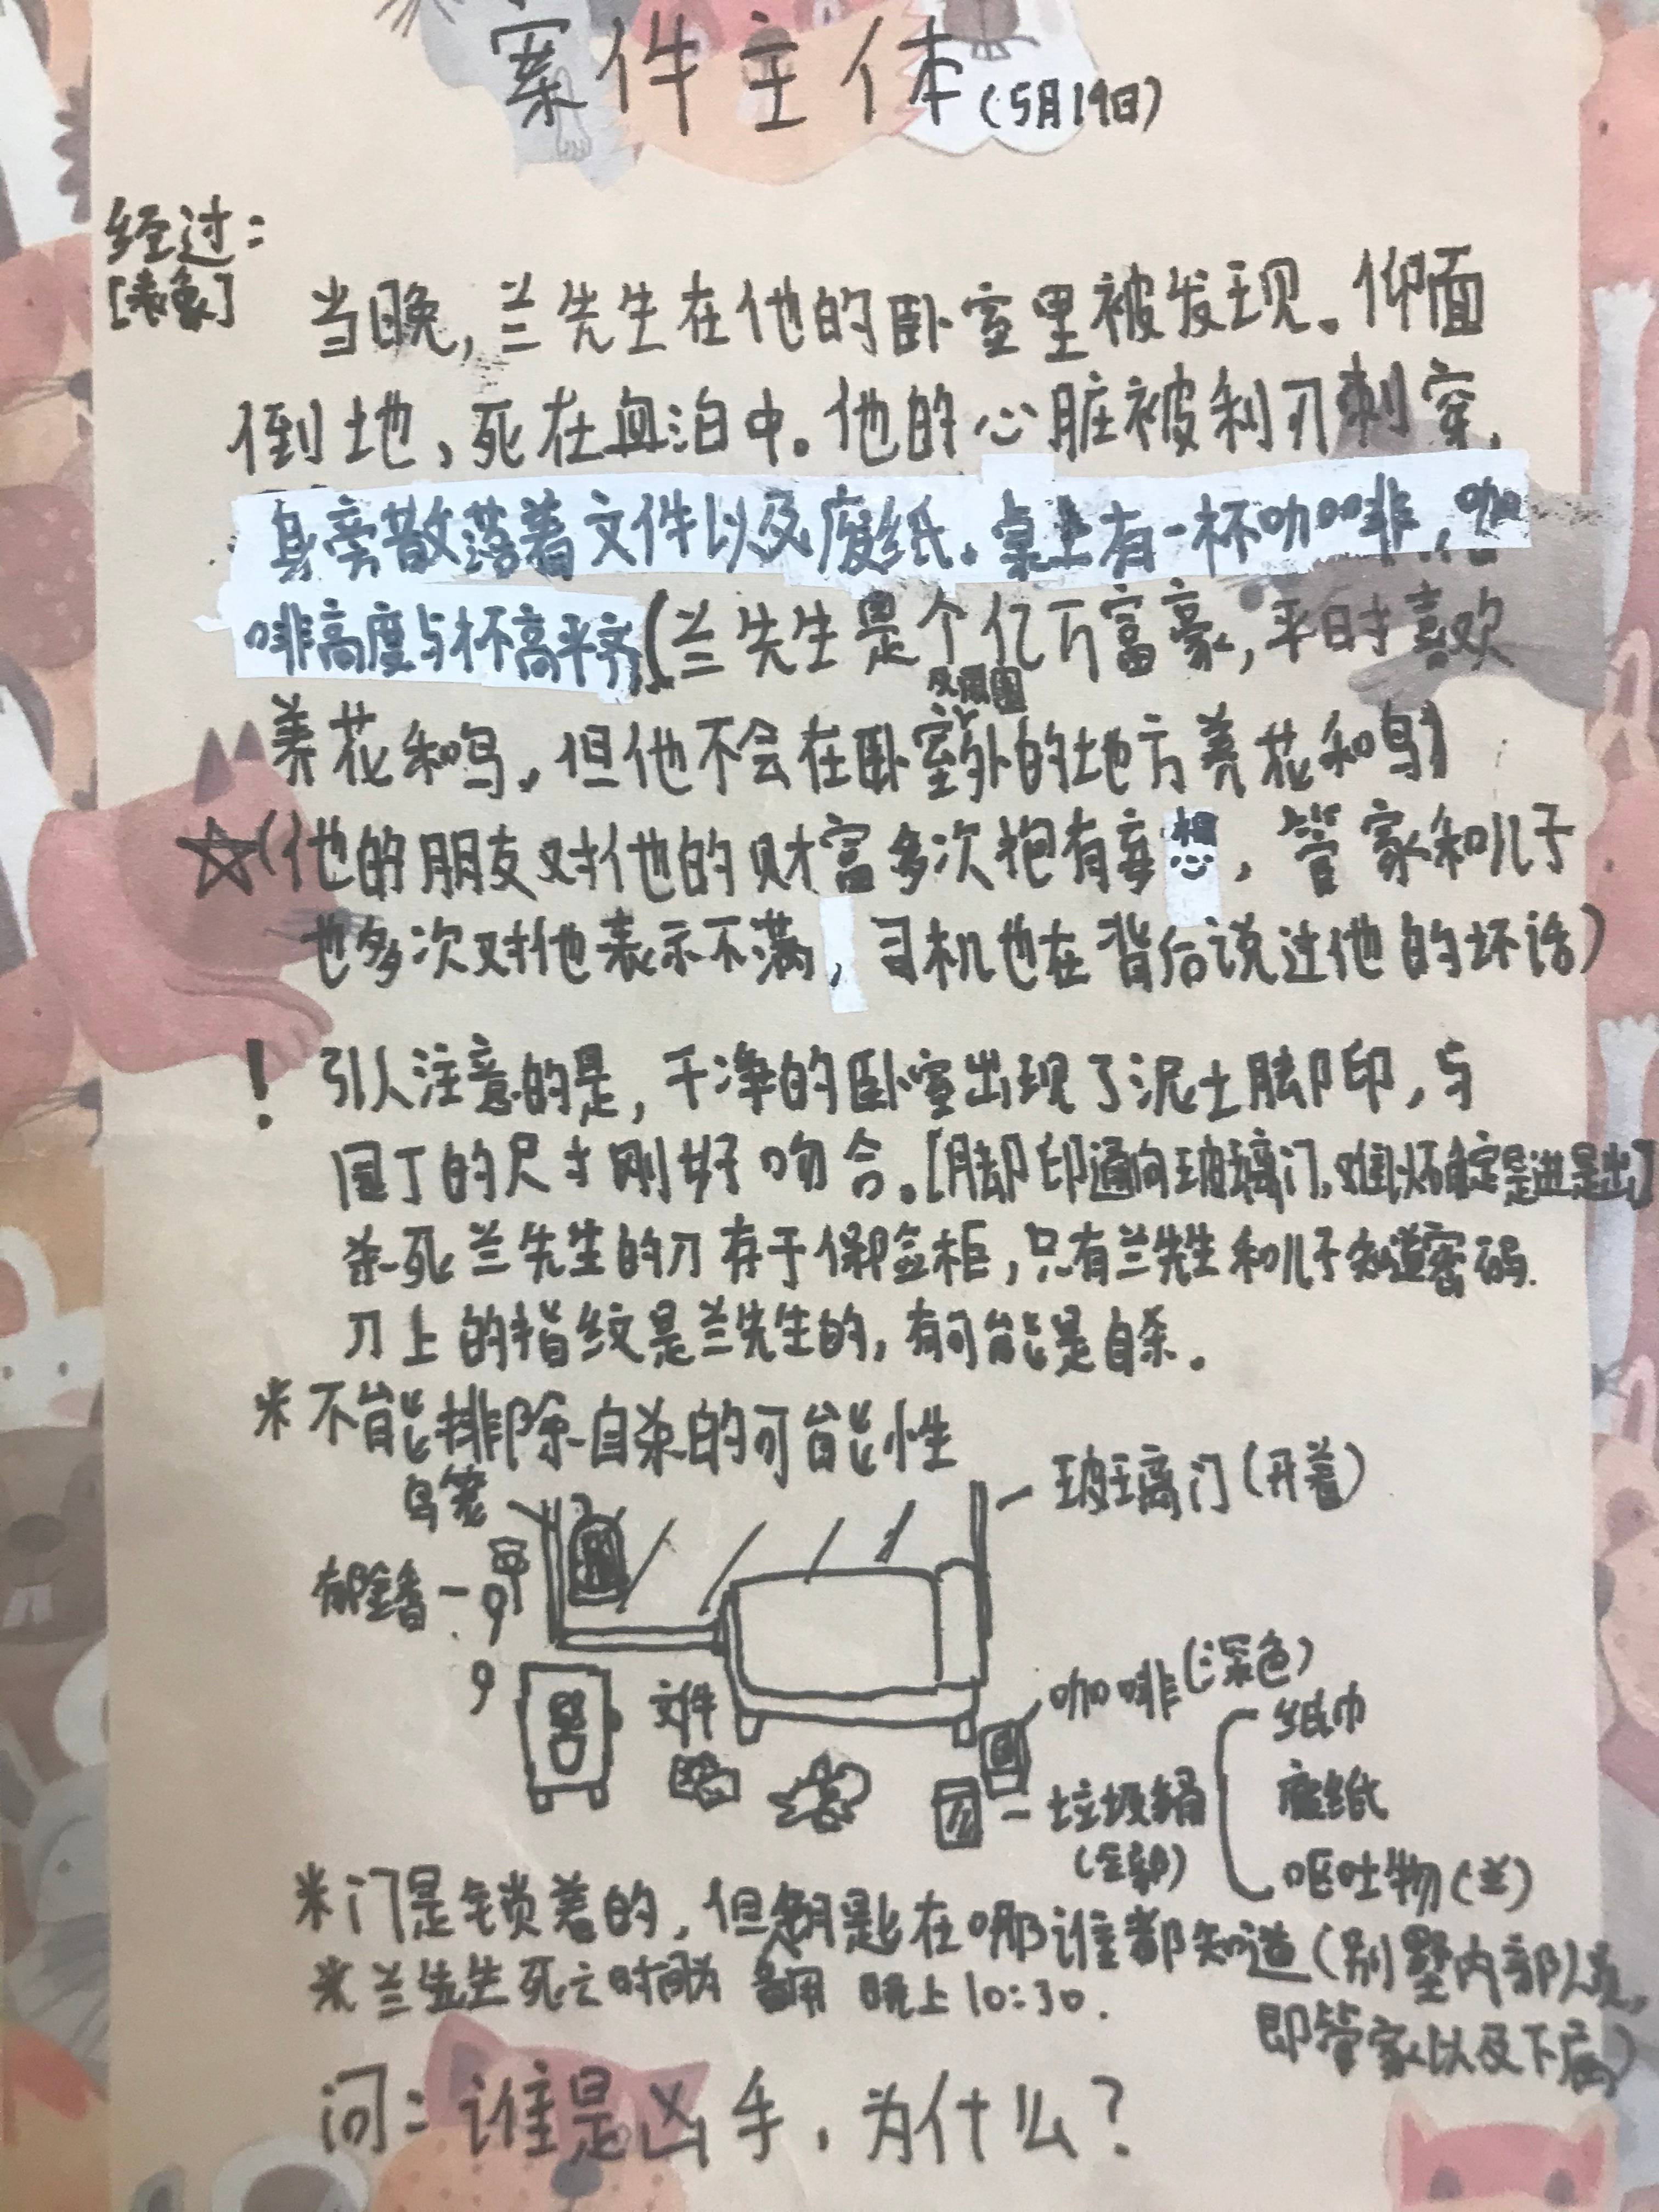 案件主体(5月19日)
经过:
[表象]
当晚,兰先生在他的卧室里被发现。仰面
倒地,死在血泊中。他的心脏被利刃刺穿,
身旁散落着文件以及废纸。桌上有一杯咖啡,咖
啡高度与杯高平齐(兰先生是个亿万富豪,平时喜欢
及花园
养花和鸟,但他不会在卧室外的地方养花和鸟)
☆(他的朋友对他的财富多次抱有妄想,管家和儿子
也多次对他表示不满,司机也在背后说过他的坏话)
! 引人注意的是,干净的卧室出现了泥土脚印,与
园丁的尺寸刚好吻合。[脚印通向玻璃门,难以确定是进是出]
杀死兰先生的刀存于保险柜,只有兰先生和儿子知道密码.
刀上的指纹是兰先生的,有可能是自杀。
*不能排除自杀的可能性
鸟笼
玻璃门(开着)
郁金香
咖啡(深色)
文件
纸巾
垃圾桶
废纸
(全部)
呕吐物(兰)
*门是锁着的,但钥匙在哪谁都知道(别墅内部人员,
*兰先生死亡时间为 晚上10:30.
即管家以及下属)
问:谁是凶手,为什么?